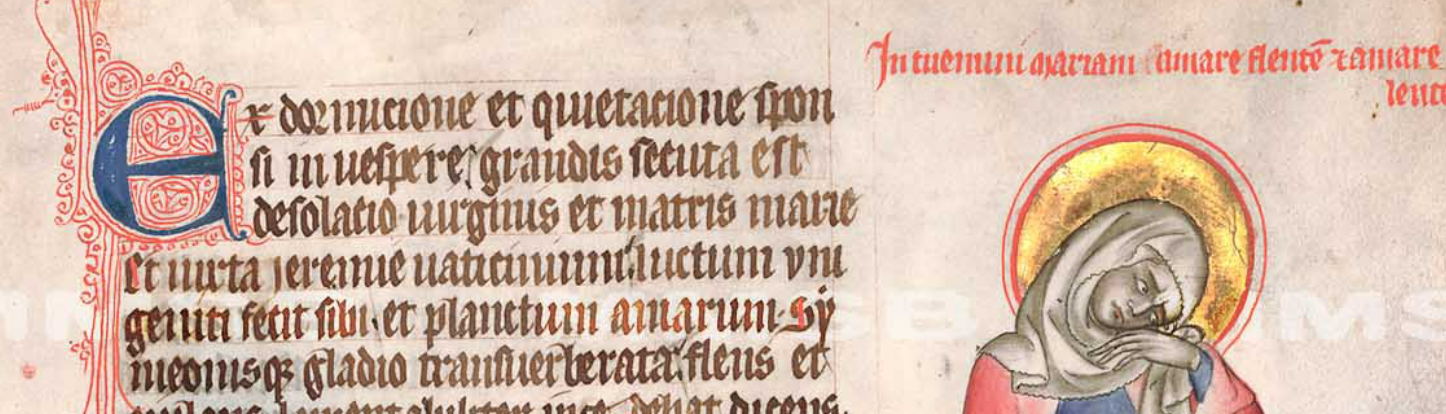 Ex dormicione et quietacione spon
si in vespere grandis secuta est
desolatio virginis et matris marie
Et iuxta jeremie vaticinium luctum vni
geniti fecit sibi et planctum amarum Sy
meonisqꝫ gladio transuerberata flens et
dicens
Intuemini mariam amare flentē ⁊ amare